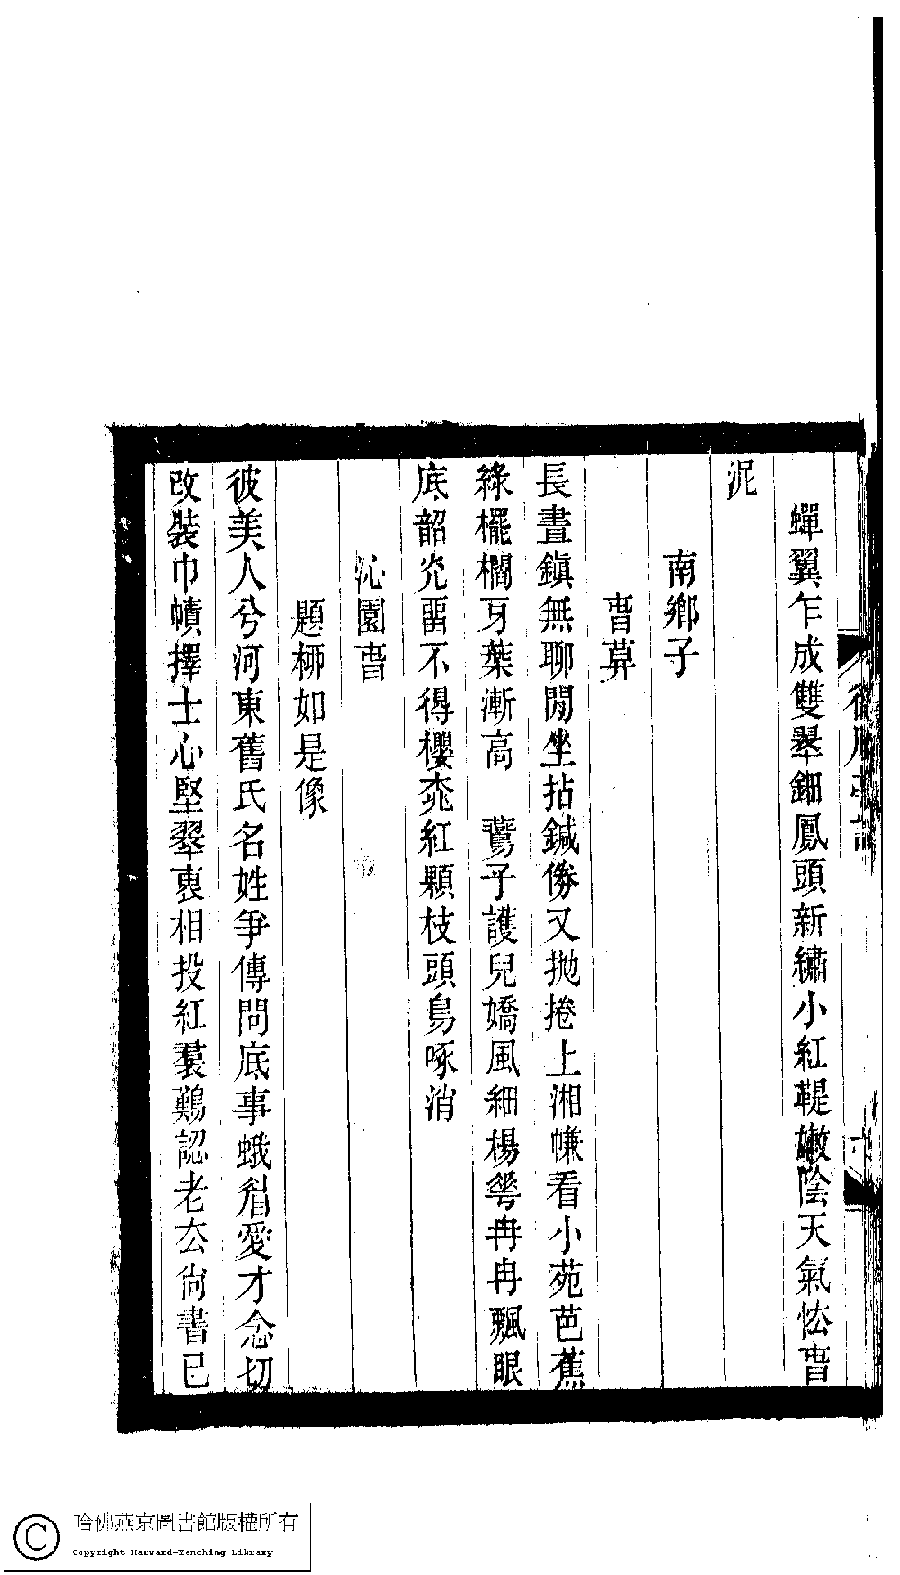 蟬翼乍成雙翠鈿鳳頭新繡小紅鞮嫩陰天氣怯春
泥
南鄉子
春暮
長晝鎭無聊閒坐拈鍼倦又拋捲上湘㡘看小苑芭蕉
綠襬欄牙葉漸高　鷰子護兒嬌風細楊花冉冉飄眼
底韶光畱不得櫻桃紅顆枝頭鳥啄消
沁園春
題柳如是像
彼美人兮河東舊氏名姓爭傳問底事蛾眉愛才念切
改裝巾幘擇士心堅翠裹相投紅裠鷄認老去尙書已
哈佛燕京圖書館版權所有
Copyright Harvard-Yenching Library